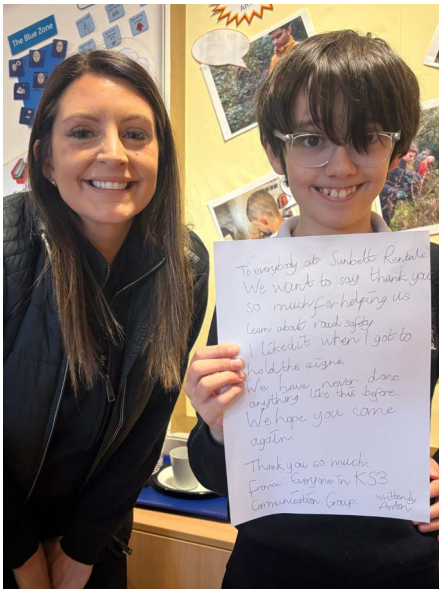 The Blue Zone
An
To everybody at Sunbelt Rentals
We want to say thank you
so much for helping us
learn about road safety
I liked it when I got to
hold the signs.
We have never done
anything like this before.
We hope you come
again.
Thank you so much
from Everyone in KS3
Communication Group.
written by
Anton